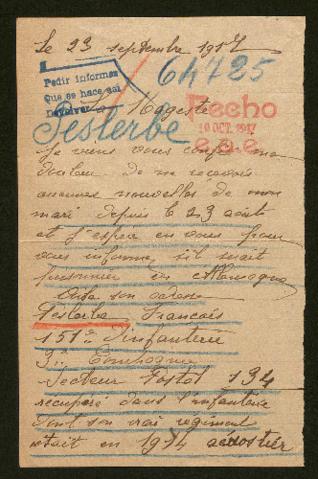 le 23 septembre 1917
Pedir informes
que se hace así
Devolver
64725
Sa Mageste
Fecho
10 OCT. 1917
Pesterbe
je viens vous confier ma
douleur de ne recevoir
aucunes nouvelles de mon
mari depuis le 23 août
et j'espere en vous pour
vous informe s'il serait
prisonnier en Allemagne
son adresse
Pesterbe Francais
151e d'infanterie
3e
Secteur Postal 134
recuperé dans l'infanterie
dont son vrai régiment
etait en 1914